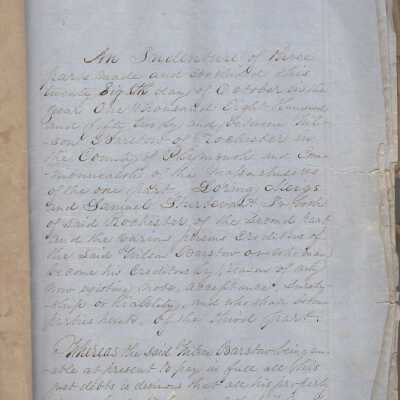 An Indenture of three
parts made and concluded this
twenty Eighth day of October in the
year One thousand Eight hundred
and fifty
son Barstow of Rochester in
the County of Plymouth and Com-
monwealth of the Massachusetts
of the one part, Loring Meigs
and Samuel Sturtevant
of Said Rochester of the Second part
and the various persons Creditors of
the Said Wilson Barstow or who may
become his Creditors by reason of any
now existing note, acceptance, Surety-
ship or liability, and who shall become
parties hereto, of the third part.
Whereas the said Wilson Barstow being un-
able at present to pay in full all his
just debts is desirous that all his property